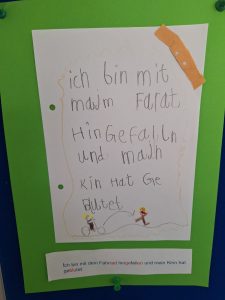 ich bin mit
maim Farat
HinGefalln
und main
Kin Hat Ge
Blutet
Ich bin mit dem Fahrrad hingefallen und mein Kinn hat
geblutet